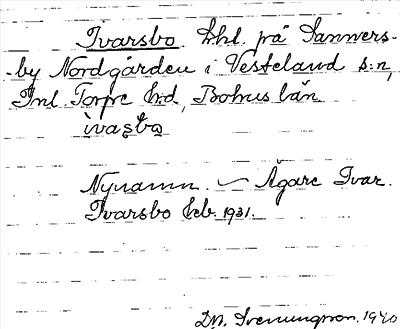 Ivarsbo. Lhl. på Sanners-
-by Nordgården i Vesteland s:n,
Inl. Torpe hrd, Bohus län
ìvaʂbo
Nynamn. — Ägare Ivar.
Ivarsbo Ecb. 1931.
D.M. Svenungsson. 1940